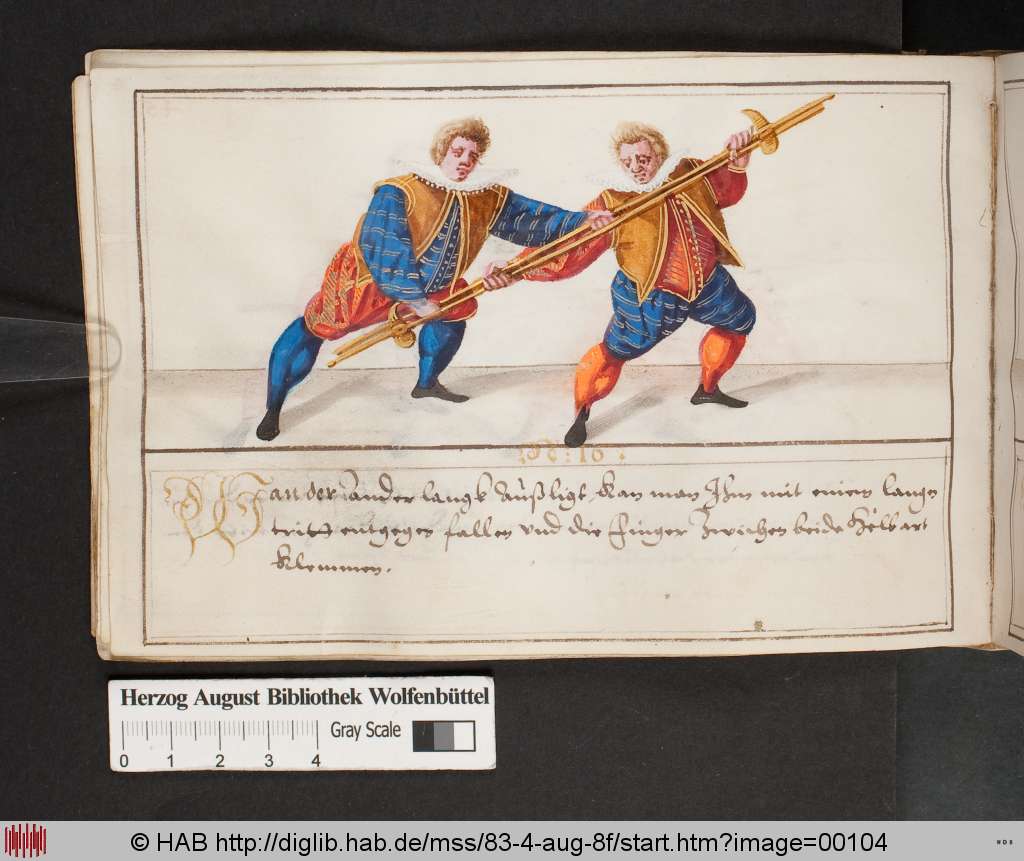 No: 16:
Wan der ander langk Außligt, Kan man Ihm mit einem langen
tritt entgegen fallen vnd die Finger Zwischen beide Helbart
Klemmen.
Herzog August Bibliothek Wolfenbüttel
Gray Scale
0 1 2 3 4
© HAB http://diglib.hab.de/mss/83-4-aug-8f/start.htm?image=00104
WDB